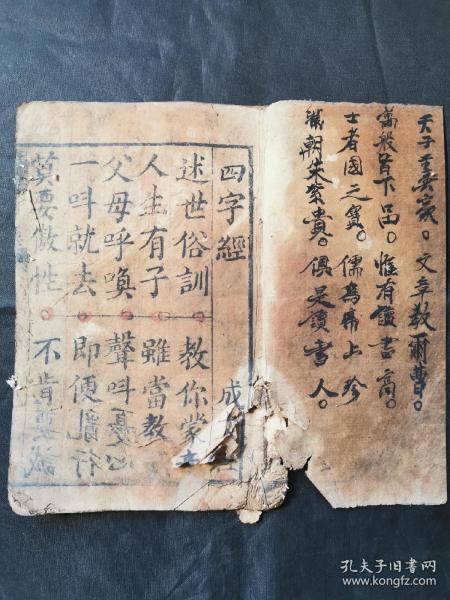 天子重英豪。文章教爾曹。
萬般皆下品。惟有讀書高。
士者國之寶。儒為席上珍
滿朝朱紫貴。俱是讀書人。
四字經 成
述世俗訓 教你蒙
人生有子 雖當教
父母呼喚 聲叫憂心
一叫就去 即便亂行
莫要傲性 不肯
孔夫子旧书网
www.kongfz.com